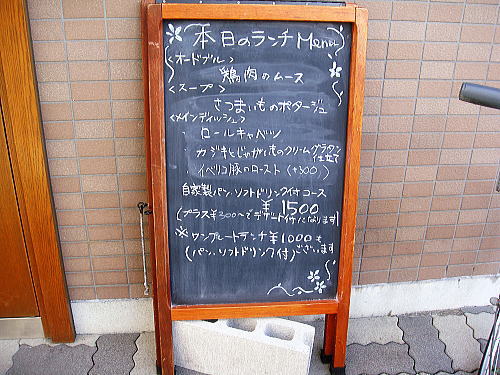 本日のランチ Menu
<オードブル>
鶏肉のムース
<スープ>
さつまいものポタージュ
<メインディッシュ>
・ロールキャベツ
・カジキとじゃがいものクリームグラタン
仕立て
・イベリコ豚のロースト (+300)
自家製パン・ソフトドリンク付コース
¥1500
(プラス¥300〜でデザート付になります)
※ワンプレートランチ¥1000も
(パン、ソフトドリンク付)ございます